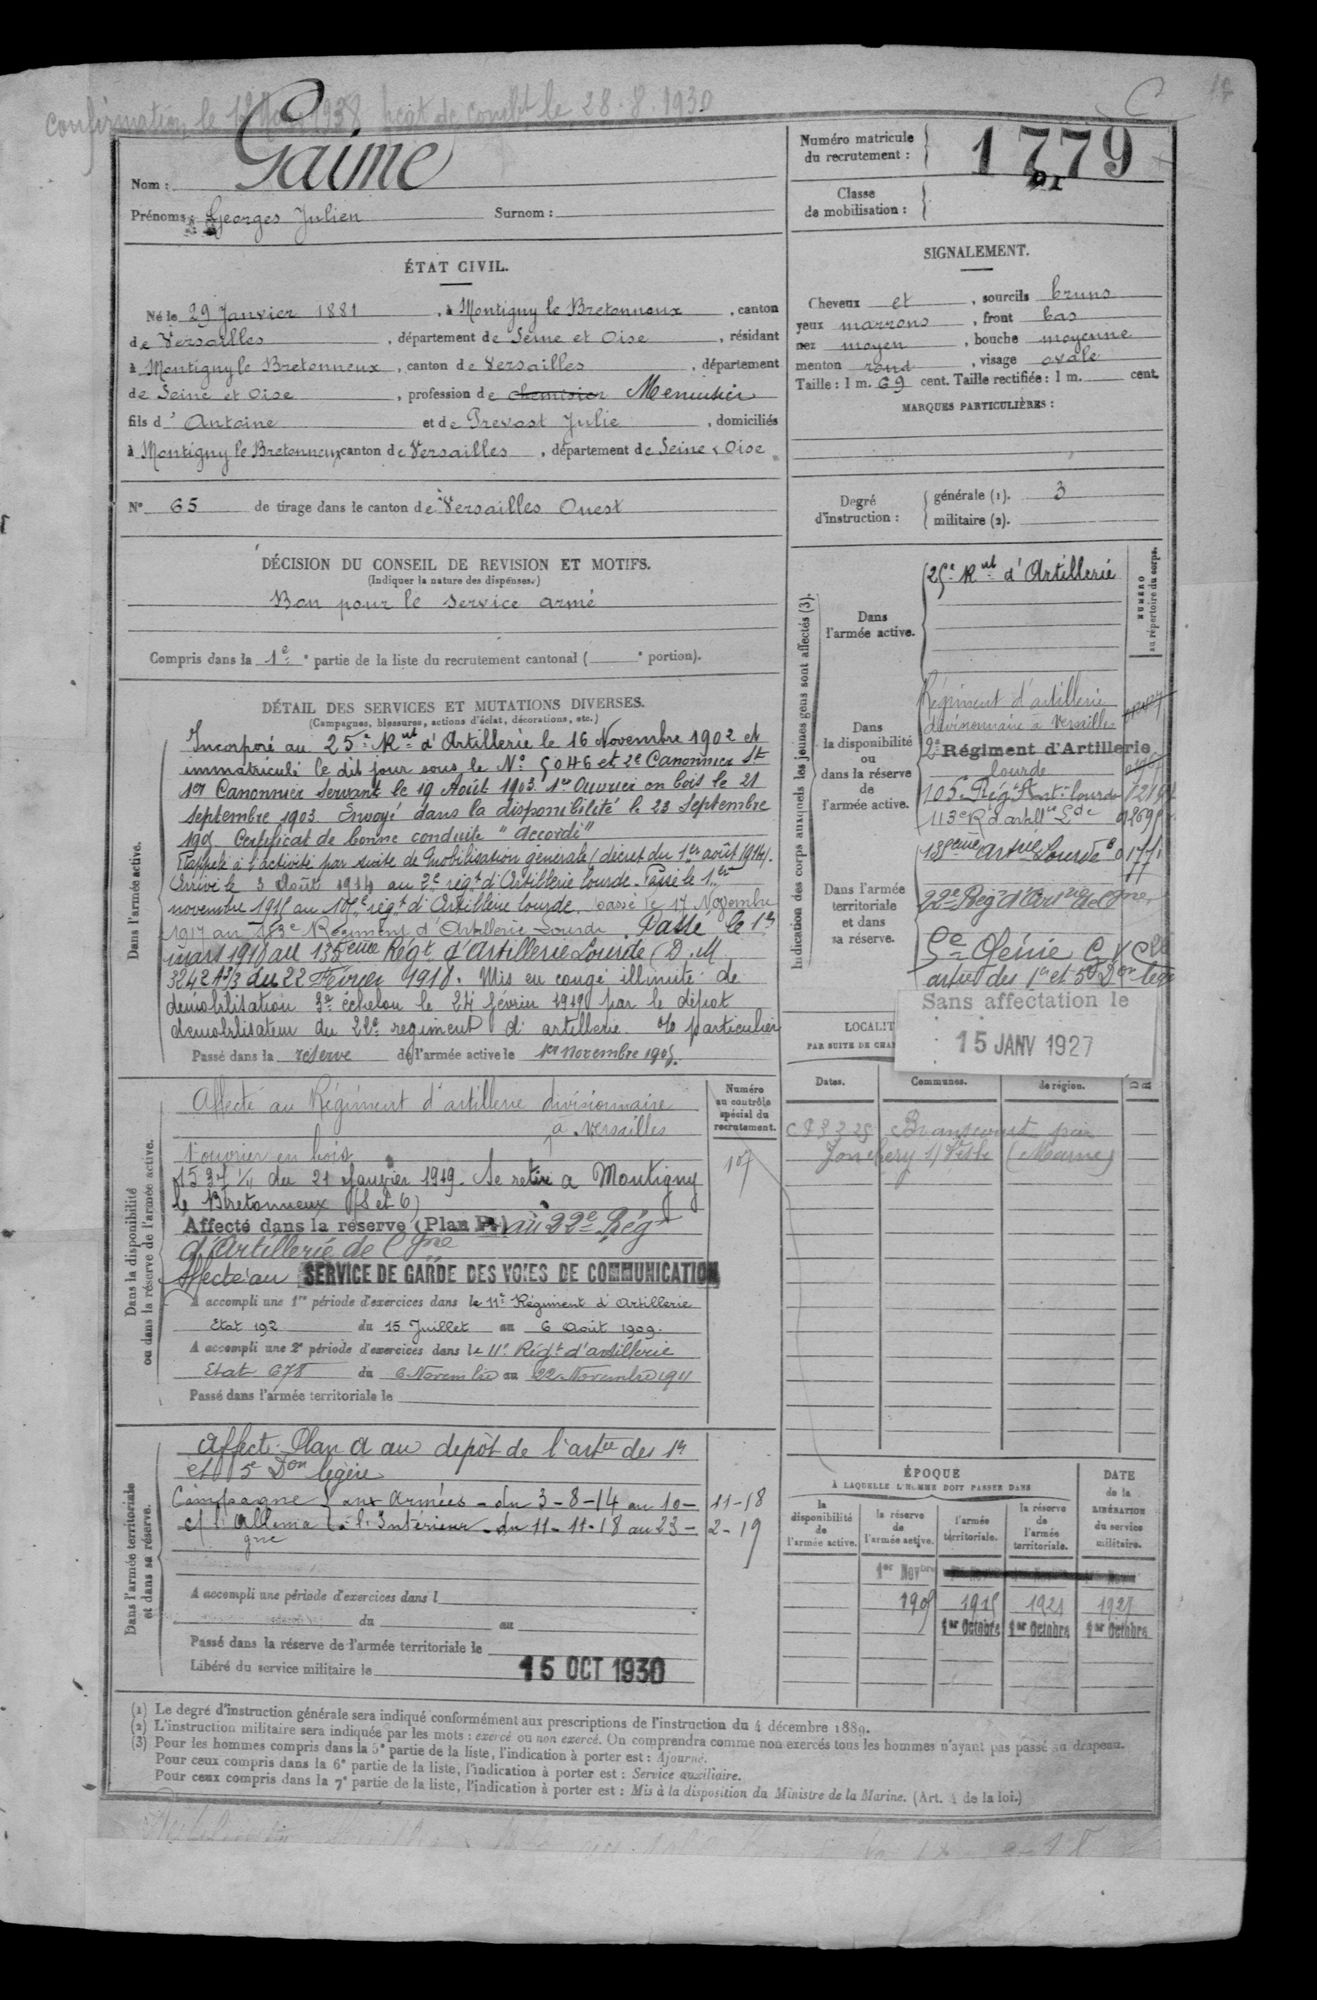 confirmation le 12 1938 de comb.t le 28-8-1930
C
Nom : Gaime
Prénoms : Georges Julien Surnom :
Numéro matricule
du recrutement : 1779
Classe
de mobilisation :
ÉTAT CIVIL.
Né le 29 Janvier 1881, à Montigny le Bretonneux, canton
de Versailles, département de Seine et Oise, résidant
à Montigny le Bretonneux, canton de Versailles, département
de Seine et Oise, profession de Menuisier
fils d' Antoine et de Prevost Julie, domiciliés
à Montigny le Bretonneux canton de Versailles, département de Seine & Oise
N° 65 de tirage dans le canton de Versailles Ouest
SIGNALEMENT.
Cheveux et, sourcils bruns
yeux marrons, front bas
nez moyen, bouche moyenne
menton rond, visage ovale
Taille : 1 m. 69 cent. Taille rectifiée : 1 m. cent.
MARQUES PARTICULIÈRES :
Degré
d'instruction :
générale (1). 3
militaire (2).
DÉCISION DU CONSEIL DE REVISION ET MOTIFS.
(Indiquer la nature des dispenses.)
Bon pour le service armé
Compris dans la 1e partie de la liste du recrutement cantonal ( e portion).
DÉTAIL DES SERVICES ET MUTATIONS DIVERSES.
(Campagnes, blessures, actions d'éclat, décorations, etc.)
Dans l'armée active.
Incorporé au 25e Rnt d'Artillerie le 16 Novembre 1902 et
immatriculé le dit jour sous le N° 5046 et 2e Canonnier St
1er Canonnier Servant le 19 Août 1903. 1er Ouvrier en bois le 21
Septembre 1903. Envoyé dans la disponibilité le 23 Septembre
190 Certificat de bonne conduite "Accordé"
Rappelé à l'activité par suite de Mobilisation générale (décret du 1er août 1914).
Arrivé le 3 Août 1914 au 2e régt d'Artillerie lourde. Passé le 1er
novembre 1915 au 105e régt d'Artillerie lourde. Passé le 17 Novembre
1917 au 113e Régiment d'Artillerie Lourde. Passé le 1er
mars 1918 au 138eme Régt d'Artillerie Lourde (D.M.
3242 A3/3 du 22 Février 1918. Mis en congé illimité de
démobilisation 3e échelon le 24 février 1919 par le dépôt
démobilisateur du 22e regiment d'artillerie. % particulier
Passé dans la réserve de l'armée active le 1er novembre 1905.
Indication des corps auxquels les jeunes gens sont affectés (3).
NUMÉRO
au répertoire du corps.
Dans
l'armée active.
25e Rnt d'Artillerie
Dans
la disponibilité
ou
dans la réserve
de
l'armée active.
Régiment d'artillerie
divisionnaire à Versailles
2e Régiment d'Artillerie
lourde
105 Régt Art. lourde
113e R d'artllie Lde
138eme artrie Lourde 0177
Dans l'armée
territoriale
et dans
sa réserve.
22e Reg d'Artrie de Cgne
5e Génie G V C
artrie des 1e et 5e Don légère
Sans affectation le
15 JANV 1927
LOCALIT
PAR SUITE DE CHA
Dates. Communes. de région.
D
R
Branscourt par
Jonchery s/ Vesle (Marne)
Dans la disponibilité
ou dans la réserve de l'armée active.
Numéro
au contrôle
spécial du
recrutement.
107
Affecté au Régiment d'artillerie divisionnaire
à Versailles
1 ouvrier en bois
1537 1/4 du 21 Janvier 1919. Se retire a Montigny
le Bretonneux (S et O)
Affecté dans la réserve (Plan P.) au 22e Rég
d'Artillerie de Cgne
Affecté au SERVICE DE GARDE DES VOIES DE COMMUNICATION
A accompli une 1re période d'exercices dans le 11e Régiment d'Artillerie
Etat 192 du 15 Juillet au 6 Août 1909.
A accompli une 2e période d'exercices dans le 11e Régt d'artillerie
Etat 678 du 6 Novembre au 22 Novembre 1911
Passé dans l'armée territoriale le
Dans l'armée territoriale
et dans sa réserve.
Affect. Plan A au dépôt de l'artie des 1e
et 5e Don légère
Campagne aux Armées - du 3-8-14 au 10-11-18
c/ l'Allemagne à l'Intérieur - du 11-11-18 au 23-2-19
A accompli une période d'exercices dans l
du au
Passé dans la réserve de l'armée territoriale le
Libéré du service militaire le 15 OCT 1930
ÉPOQUE
À LAQUELLE L'HOMME DOIT PASSER DANS
DATE
de la
LIBÉRATION
du service
militaire.
la
disponibilité
de
l'armée active.
la réserve
de
l'armée active.
l'armée
territoriale.
la réserve
de
l'armée
territoriale.
1er Novbre
1905 1915 1921 1927
1er Octobre 1er Octobre 1er Octobre
(1) Le degré d'instruction générale sera indiqué conformément aux prescriptions de l'instruction du 4 décembre 1889.
(2) L'instruction militaire sera indiquée par les mots : exercé ou non exercé. On comprendra comme non exercés tous les hommes n'ayant pas passé au drapeau.
(3) Pour les hommes compris dans la 5e partie de la liste, l'indication à porter est : Ajourné.
Pour ceux compris dans la 6e partie de la liste, l'indication à porter est : Service auxiliaire.
Pour ceux compris dans la 7e partie de la liste, l'indication à porter est : Mis à la disposition du Ministre de la Marine. (Art. 4 de la loi.)